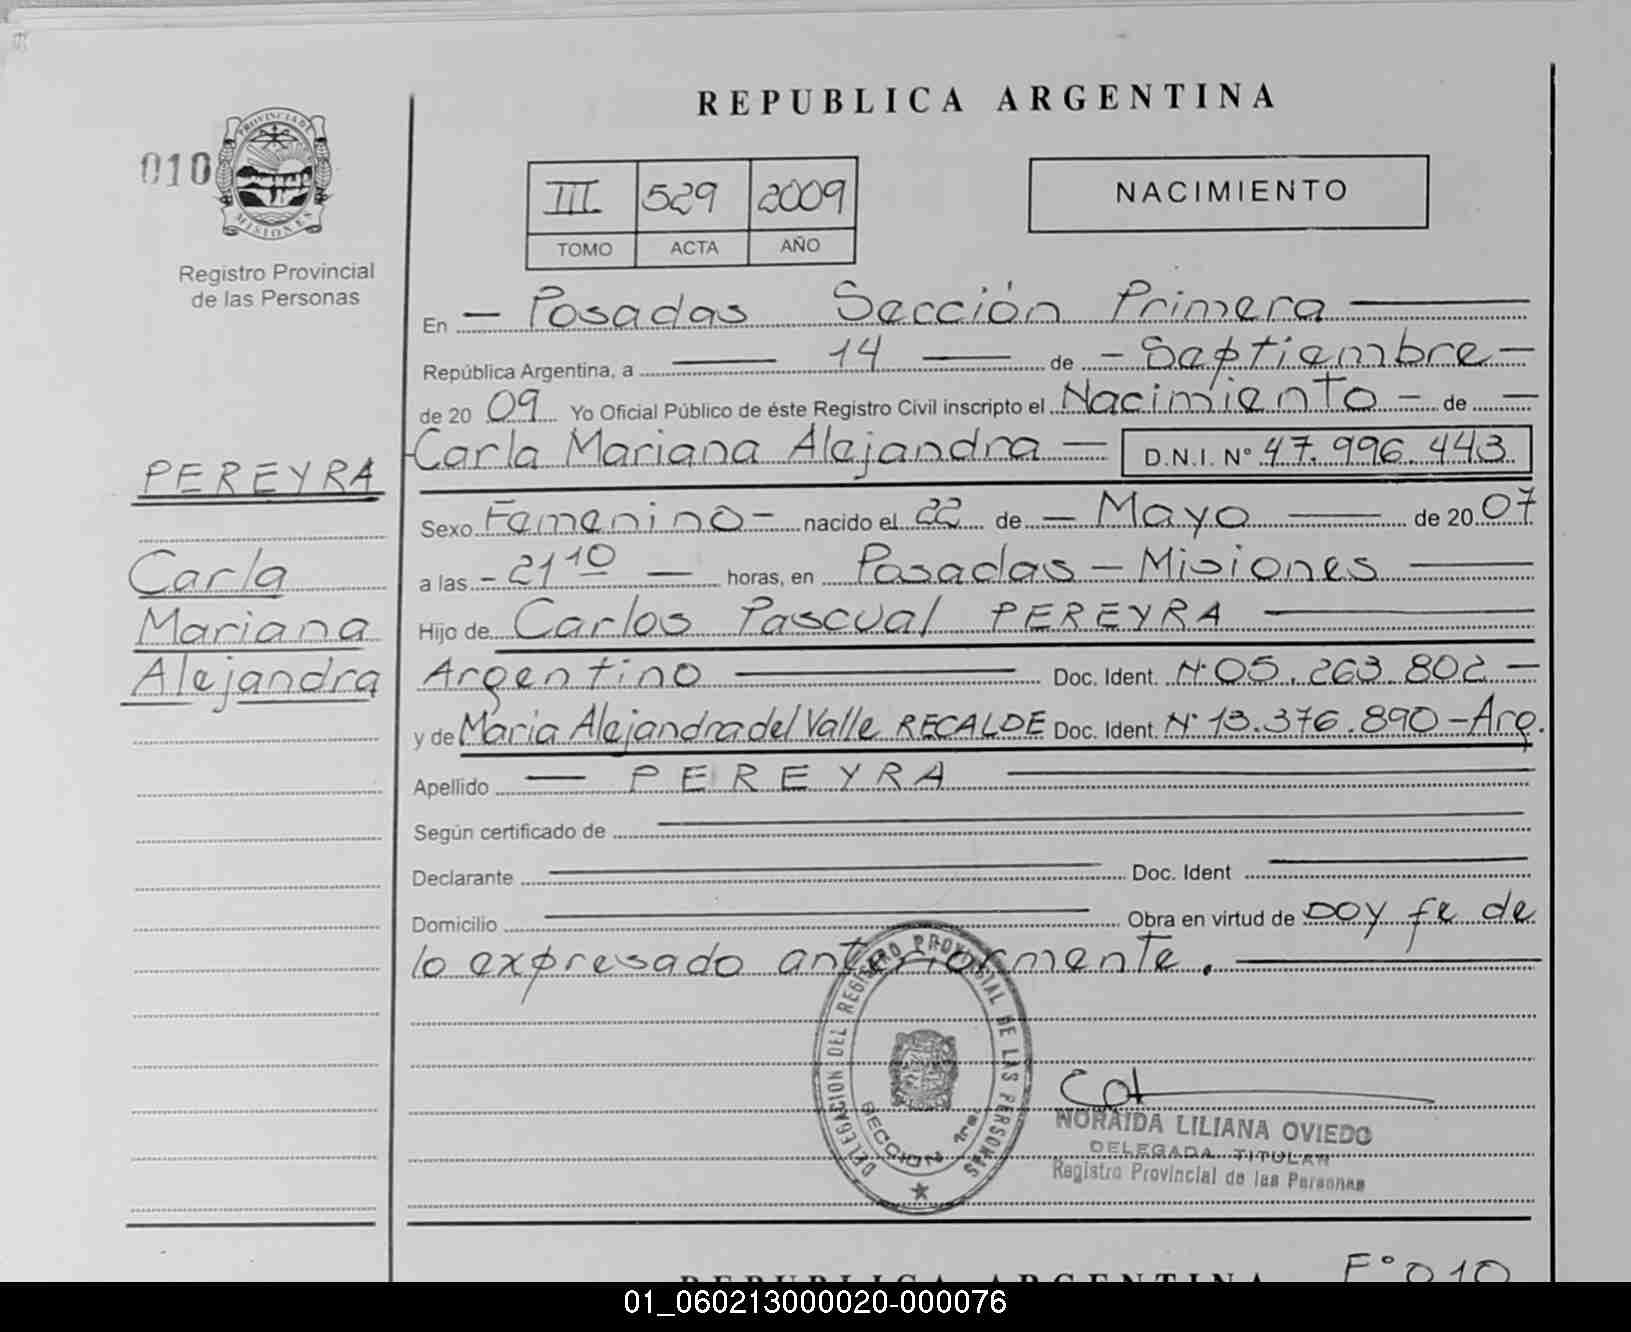 REPUBLICA ARGENTINA
010
PROVINCIA DE
MISIONES
Registro Provincial
de las Personas
III 529 2009
TOMO ACTA AÑO
NACIMIENTO
En – Posadas Sección Primera —
República Argentina, a — 14 — de – Septiembre –
de 20 09 Yo Oficial Público de éste Registro Civil inscripto el Nacimiento – de —
Carla Mariana Alejandra — D.N.I. Nº 47.996.443
PEREYRA
Carla
Mariana
Alejandra
Sexo Femenino – nacido el 22 de – Mayo — de 20 07
a las – 21 10 — horas, en Posadas – Misiones —
Hijo de Carlos Pascual PEREYRA —
Argentino — Doc. Ident. Nº 05.263.802 –
y de Maria Alejandra del Valle RECALDE Doc. Ident. Nº 13.376.890 – Arg.
Apellido — PEREYRA —
Según certificado de —
Declarante — Doc. Ident —
Domicilio — Obra en virtud de DOY fe de
lo expresado anteriormente. —
DELEGACION DEL REGISTRO PROVINCIAL DE LAS PERSONAS
SECCION 1ra.
NORAIDA LILIANA OVIEDO
DELEGADA TITULAR
Registro Provincial de las Personas
REPUBLICA ARGENTINA
Fº 010
01_060213000020-000076